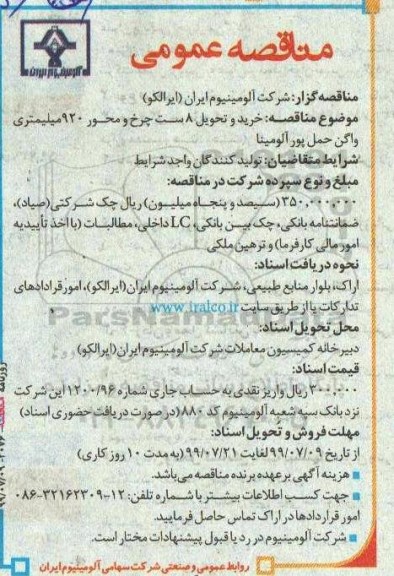 مناقصه عمومی
آلومینیوم ایران
مناقصه گزار: شرکت آلومینیوم ایران (ایرالکو)
موضوع مناقصه: خرید و تحویل ۸ ست چرخ و محور ۹۲۰ میلیمتری
واگن حمل پور آلومینا
شرایط متقاضیان: تولید کنندگان واجد شرایط
مبلغ و نوع سپرده شرکت در مناقصه:
۳۵۰,۰۰۰,۰۰۰ (سیصد و پنجاه میلیون) ریال چک شرکتی (صیاد)،
ضمانتنامه بانکی، چک بین بانکی، LC داخلی، مطالبات (با اخذ تأییدیه
امور مالی کارفرما) و ترهین ملکی
نحوه دریافت اسناد:
اراک، بلوار منابع طبیعی، شرکت آلومینیوم ایران (ایرالکو)، امور قراردادهای
تدارکات یا از طریق سایت www.iralco.ir
محل تحویل اسناد:
دبیرخانه کمیسیون معاملات شرکت آلومینیوم ایران (ایرالکو)
قیمت اسناد:
۳۰۰,۰۰۰ ریال واریز نقدی به حساب جاری شماره ۱۲۰۰/۹۶ این شرکت
نزد بانک سپه شعبه آلومینیوم کد ۸۸۰ (در صورت دریافت حضوری اسناد)
مهلت فروش و تحویل اسناد:
از تاریخ ۹۹/۰۷/۰۹ لغایت ۹۹/۰۷/۲۱ (به مدت ۱۰ روز کاری)
هزینه آگهی بر عهده برنده مناقصه می‌باشد.
جهت کسب اطلاعات بیشتر با شماره تلفن: ۱۲-۳۲۱۶۲۳۰۹-۰۸۶
امور قراردادها در اراک تماس حاصل فرمایید.
شرکت آلومینیوم در رد یا قبول پیشنهادات مختار است.
روابط عمومی و صنعتی شرکت سهامی آلومینیوم ایران